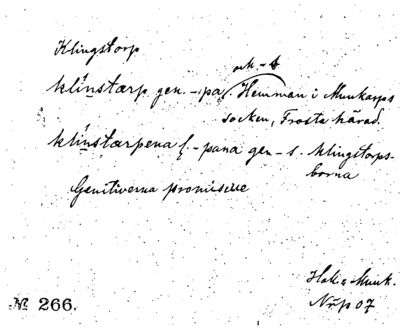 Klingstorp
och -s
klinstærp gen. -pa. Hemman i Munkarps
socken, Frosta härad.
klinstærpena f. -pana gen -s. Klingstorps-
borna
Genitiverna promiscue
Hak e Munk.
Nr 266.